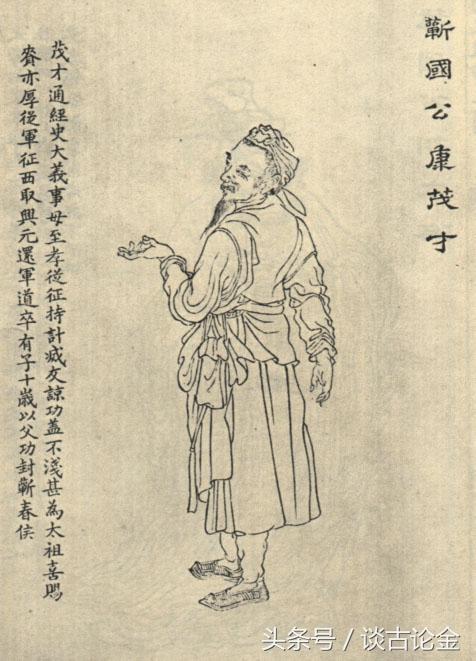 蘄國公康茂才
茂才通經史大義事母至孝從征持計滅友諒功蓋不淺甚為太祖喜賜
賚亦厚從軍征西取興元還軍道卒有子十歲以父功封蘄春侯
头条号 / 谈古论金